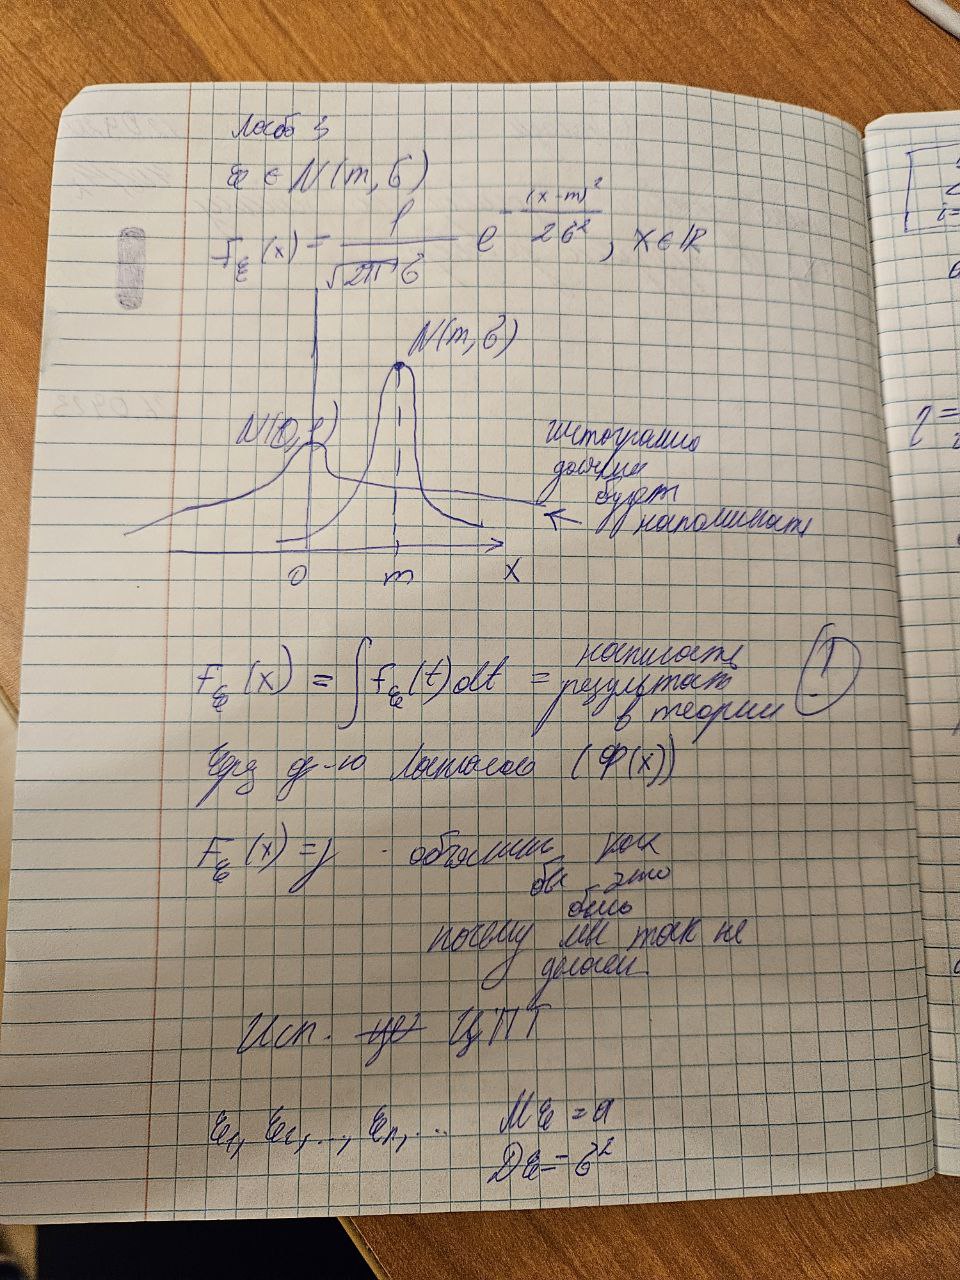 Лаба 3
ξ ∈ N(m, σ)
f_ξ(x) = 1/(√(2π) σ) e^(-(x-m)²/(2σ²)), x ∈ ℝ
N(m, σ)
N(0, 1)
гистограмма
должна
будет
напоминать
0 m x
F_ξ(x) = ∫ f_ξ(t)dt = написать
результат
в теории
!
через ф-ю Лапласа (Ф(x))
F_ξ(x) = γ - объяснить как
бы это
было
почему мы так не
делаем
Исп. ЦПТ
ξ₁, ξ₂, ..., ξₙ, ... Mξ = a
Dξ = σ²